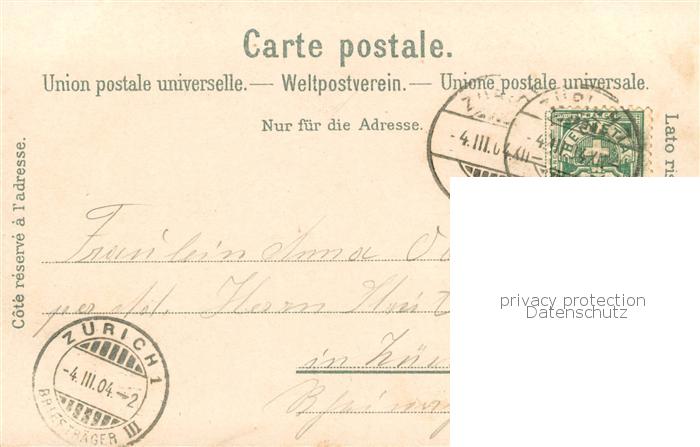 Carte postale.
Union postale universelle. — Weltpostverein. — Unione postale universale.
Nur für die Adresse.
Côté réservé à l'adresse.
Lato ris
ZÜRIC
-4.III.04.XII-
ZÜRI
-4.III.04.XII-
HELVETIA
Fräulein Anna
per Ad. Herrn
in
ZÜRICH 1
-4.III.04.-2
BRIEFTRÄGER III
privacy protection
Datenschutz